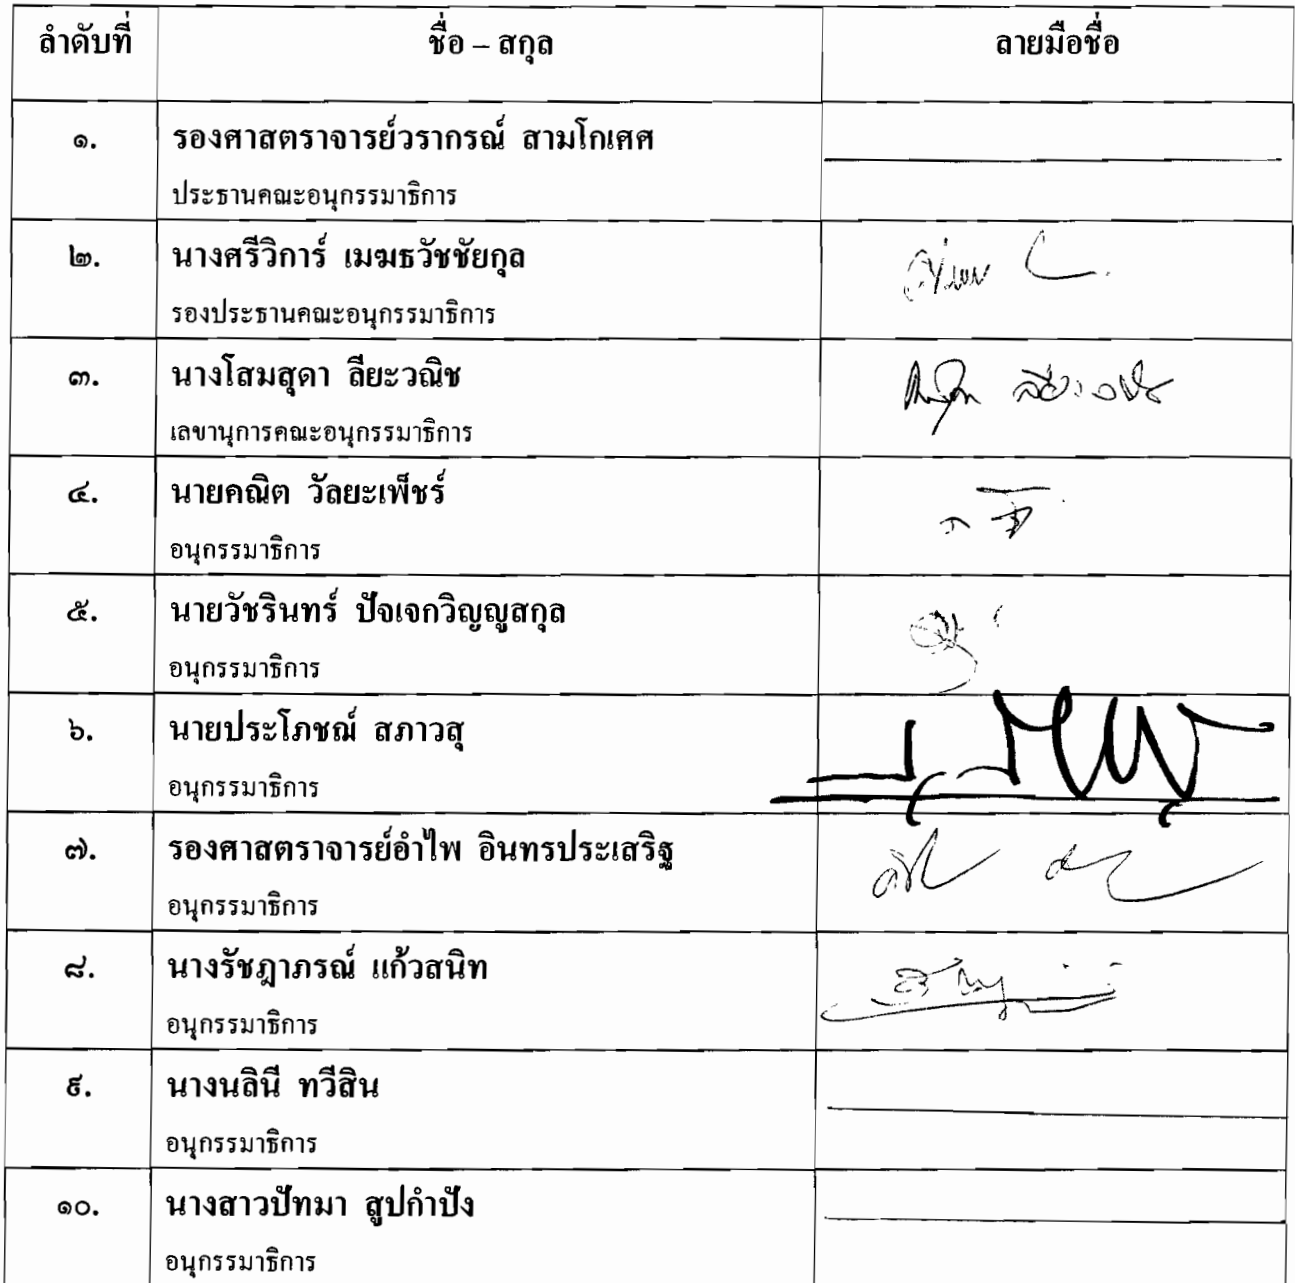 ลำดับที่ ชื่อ – สกุล ลายมือชื่อ
๑. รองศาสตราจารย์วรากรณ์ สามโกเศศ
ประธานคณะอนุกรรมาธิการ
๒. นางศรีวิการ์ เมฆธวัชชัยกุล
รองประธานคณะอนุกรรมาธิการ
๓. นางโสมสุดา ลียะวณิช
เลขานุการคณะอนุกรรมาธิการ
๔. นายคณิต วัลยะเพ็ชร์
อนุกรรมาธิการ
๕. นายวัชรินทร์ ปัจเจกวิญญูสกุล
อนุกรรมาธิการ
๖. นายประโภชฌ์ สภาวสุ
อนุกรรมาธิการ
๗. รองศาสตราจารย์อำไพ อินทรประเสริฐ
อนุกรรมาธิการ
๘. นางรัชฎาภรณ์ แก้วสนิท
อนุกรรมาธิการ
๙. นางนลินี ทวีสิน
อนุกรรมาธิการ
๑๐. นางสาวปัทมา สูปกำปัง
อนุกรรมาธิการ